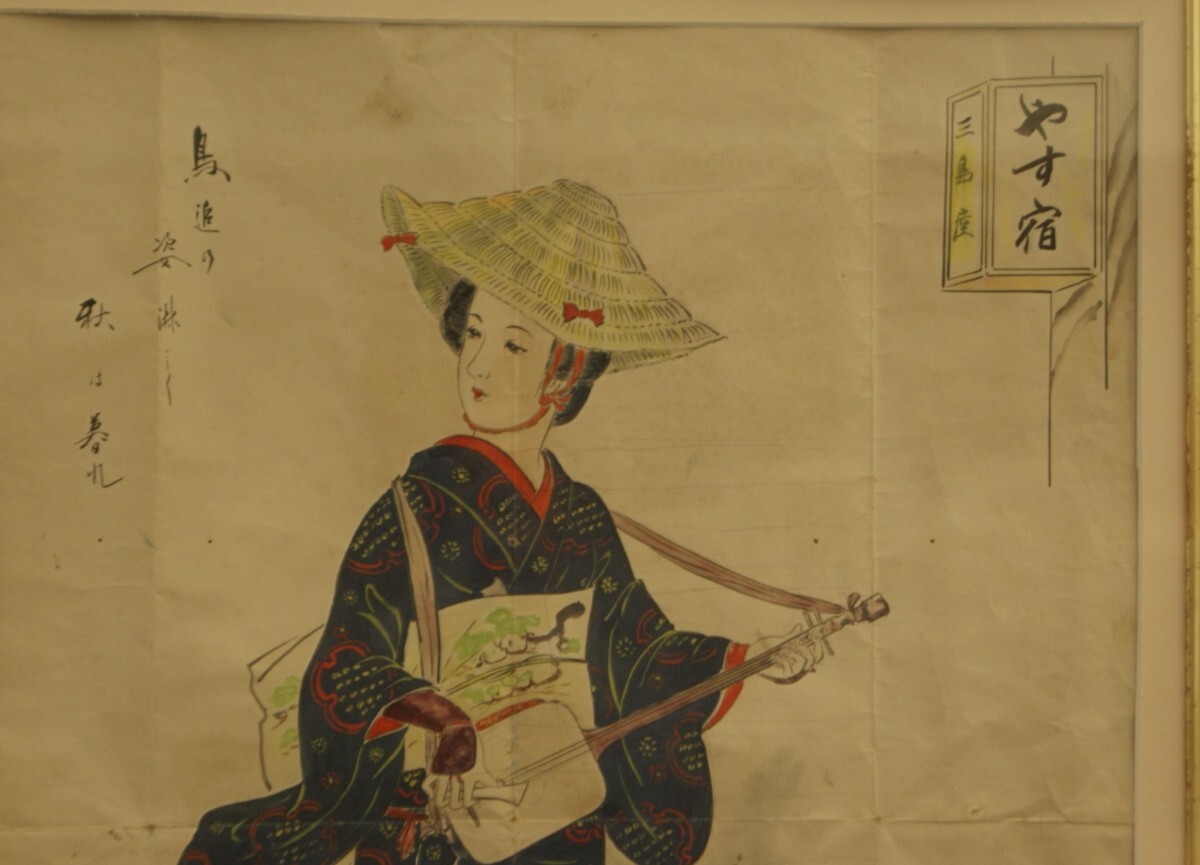 やす宿
三島座
鳥追の
姿淋し
秋は暮れ